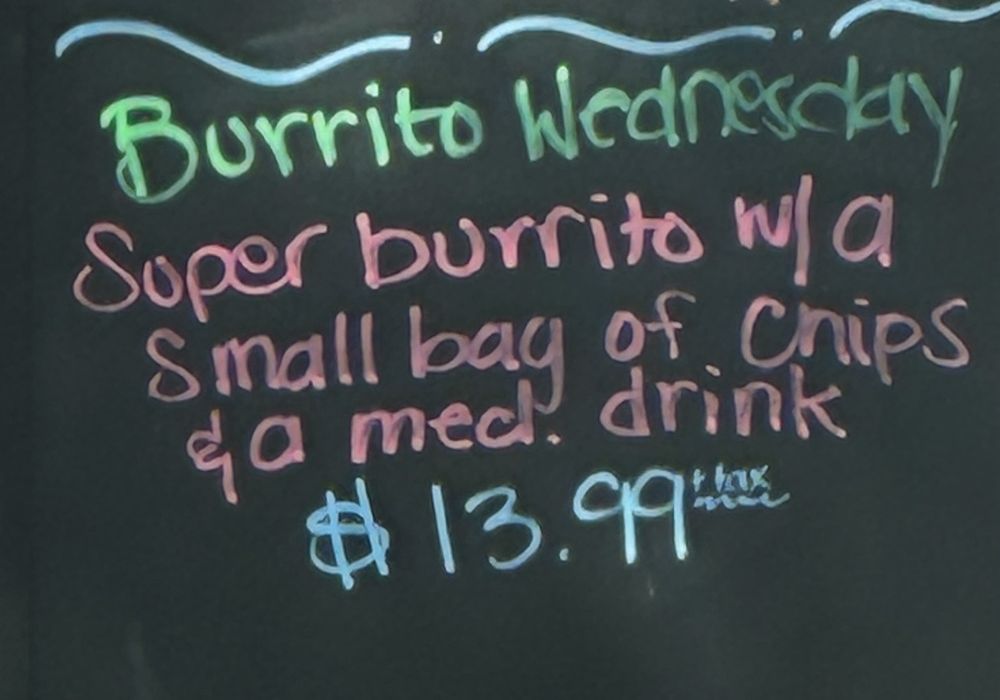 Burrito Wednesday
Super burrito w/ a
small bag of Chips
& a med. drink
$13.99 +tax